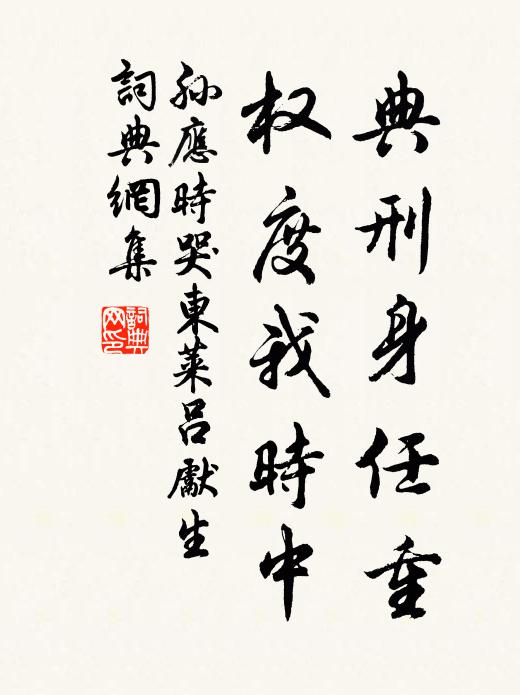 典刑身任重
权度我時中
孫應時哭東莱吕獻生
詞典網集
詞典网印